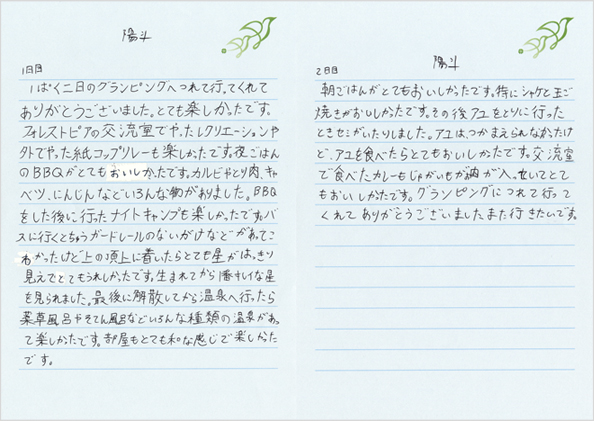 陽斗
1日目
1ぱく二日のグランピングへつれて行ってくれて
ありがとうございました。とても楽しかったです。
フォレストピアの交流室でやったレクリエーションや
外でやった紙コップリレーも楽しかったです。夜ごはん
のBBQがとてもおいしかったです。カルビやとり肉、キャ
ベツ、にんじんなどいろんな物がありました。BBQ
をした後に行ったナイトキャンプも楽しかったです。バ
スに行くとちゅうガードレールのないがけなどがあってこ
わかったけど上の頂上に着いたらとても星がはっきり
見えてとてもうれしかったです。生まれてから1番キレイな星
を見られました。最後に解散してから温泉へ行ったら
薬草風呂やそてん風呂などいろんな種類の温泉があっ
て楽しかったです。部屋もとても和な感じで楽しかった
です。
陽斗
2日目
朝ごはんがとてもおいしかったです。特にシャケと玉ご
焼きがおいしかったです。その後アユをとりに行った
ときセミがいたりしました。アユはつかまえられなかったけ
ど、アユを食べたらとてもおいしかったです。交流室
で食べたカレーもじゃがいもが
もおいしかったです。グランピングにつれて行って
くれてありがとうございました。また行きたいです。